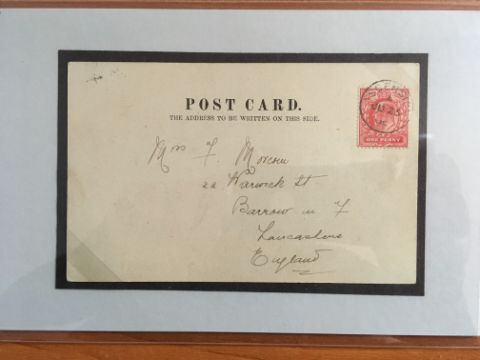 POST CARD.
THE ADDRESS TO BE WRITTEN ON THIS SIDE.
ONE PENNY
F.
Warwick St
Barrow in F
Lancashire
England